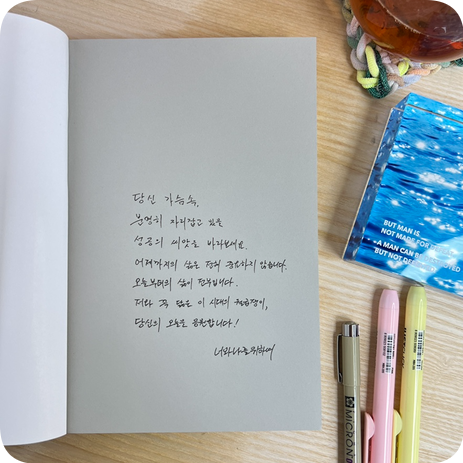 당신 가슴속,
분명히 자리잡고 있을
성공의 씨앗을 바라보세요.
어제까지의 삶은 전혀 중요하지 않습니다.
오늘부터의 삶이 전부입니다.
저와 꼭 닮은 이 시대의
당신의 오늘을 응원합니다!
너와나를위하여
BUT MAN IS
NOT MADE FOR
A MAN CAN
BUT NOT
MICRON